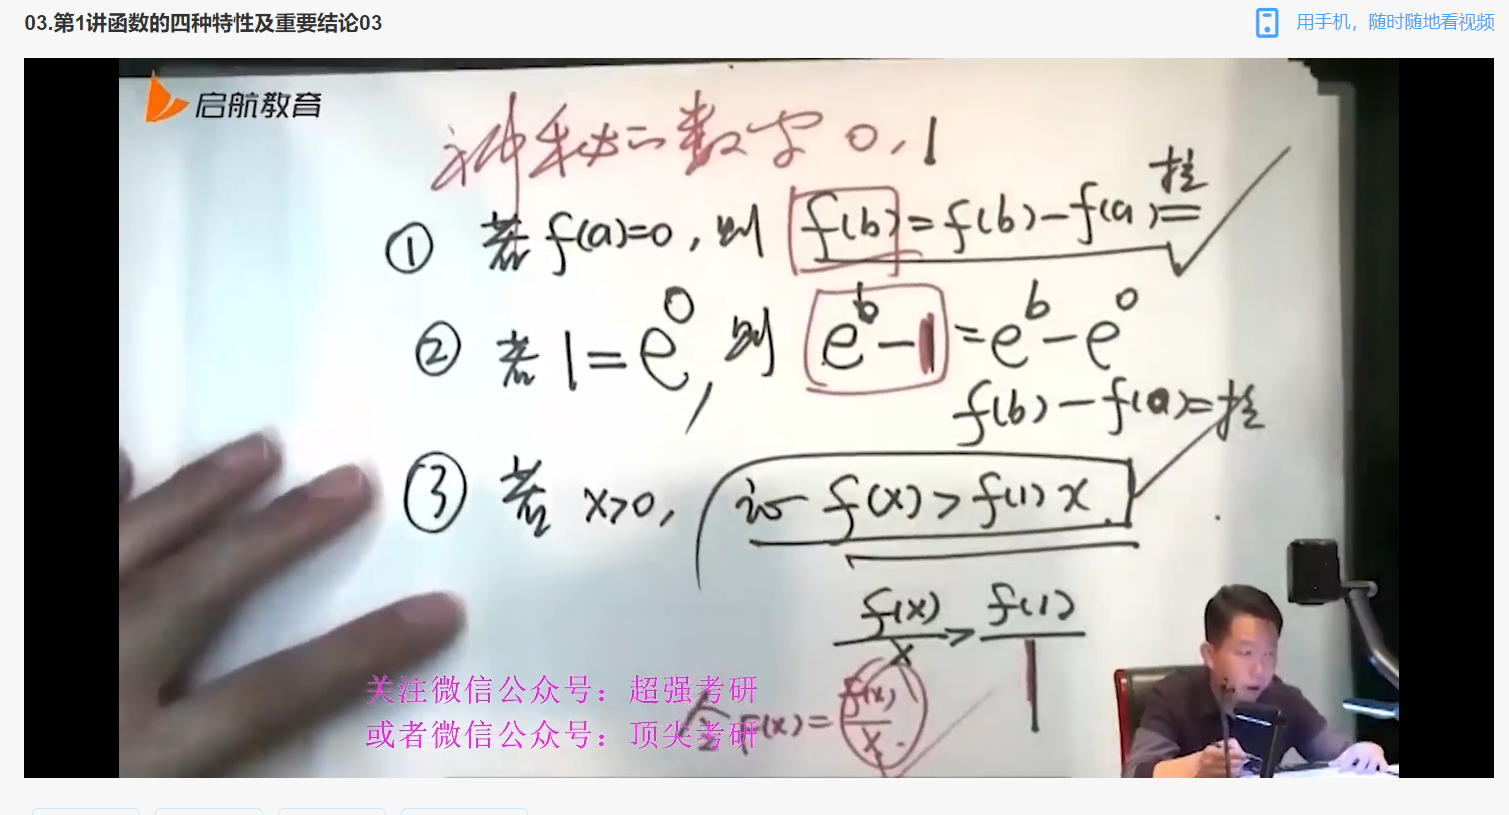 03.第1讲函数的四种特性及重要结论03
用手机，随时随地看视频
启航教育
神秘の数字 0,1
① 若 f(a)=0, 则 f(b)=f(b)-f(a)拉=
② 若 1=e⁰, 则 eᵇ-1=eᵇ-e⁰
f(b)-f(a)=拉
③ 若 x>0, 证 f(x)>f(1)x.
f(x)/x > f(1)/1
关注微信公众号：超强考研
令 F(x)=f(x)/x.
或者微信公众号：顶尖考研